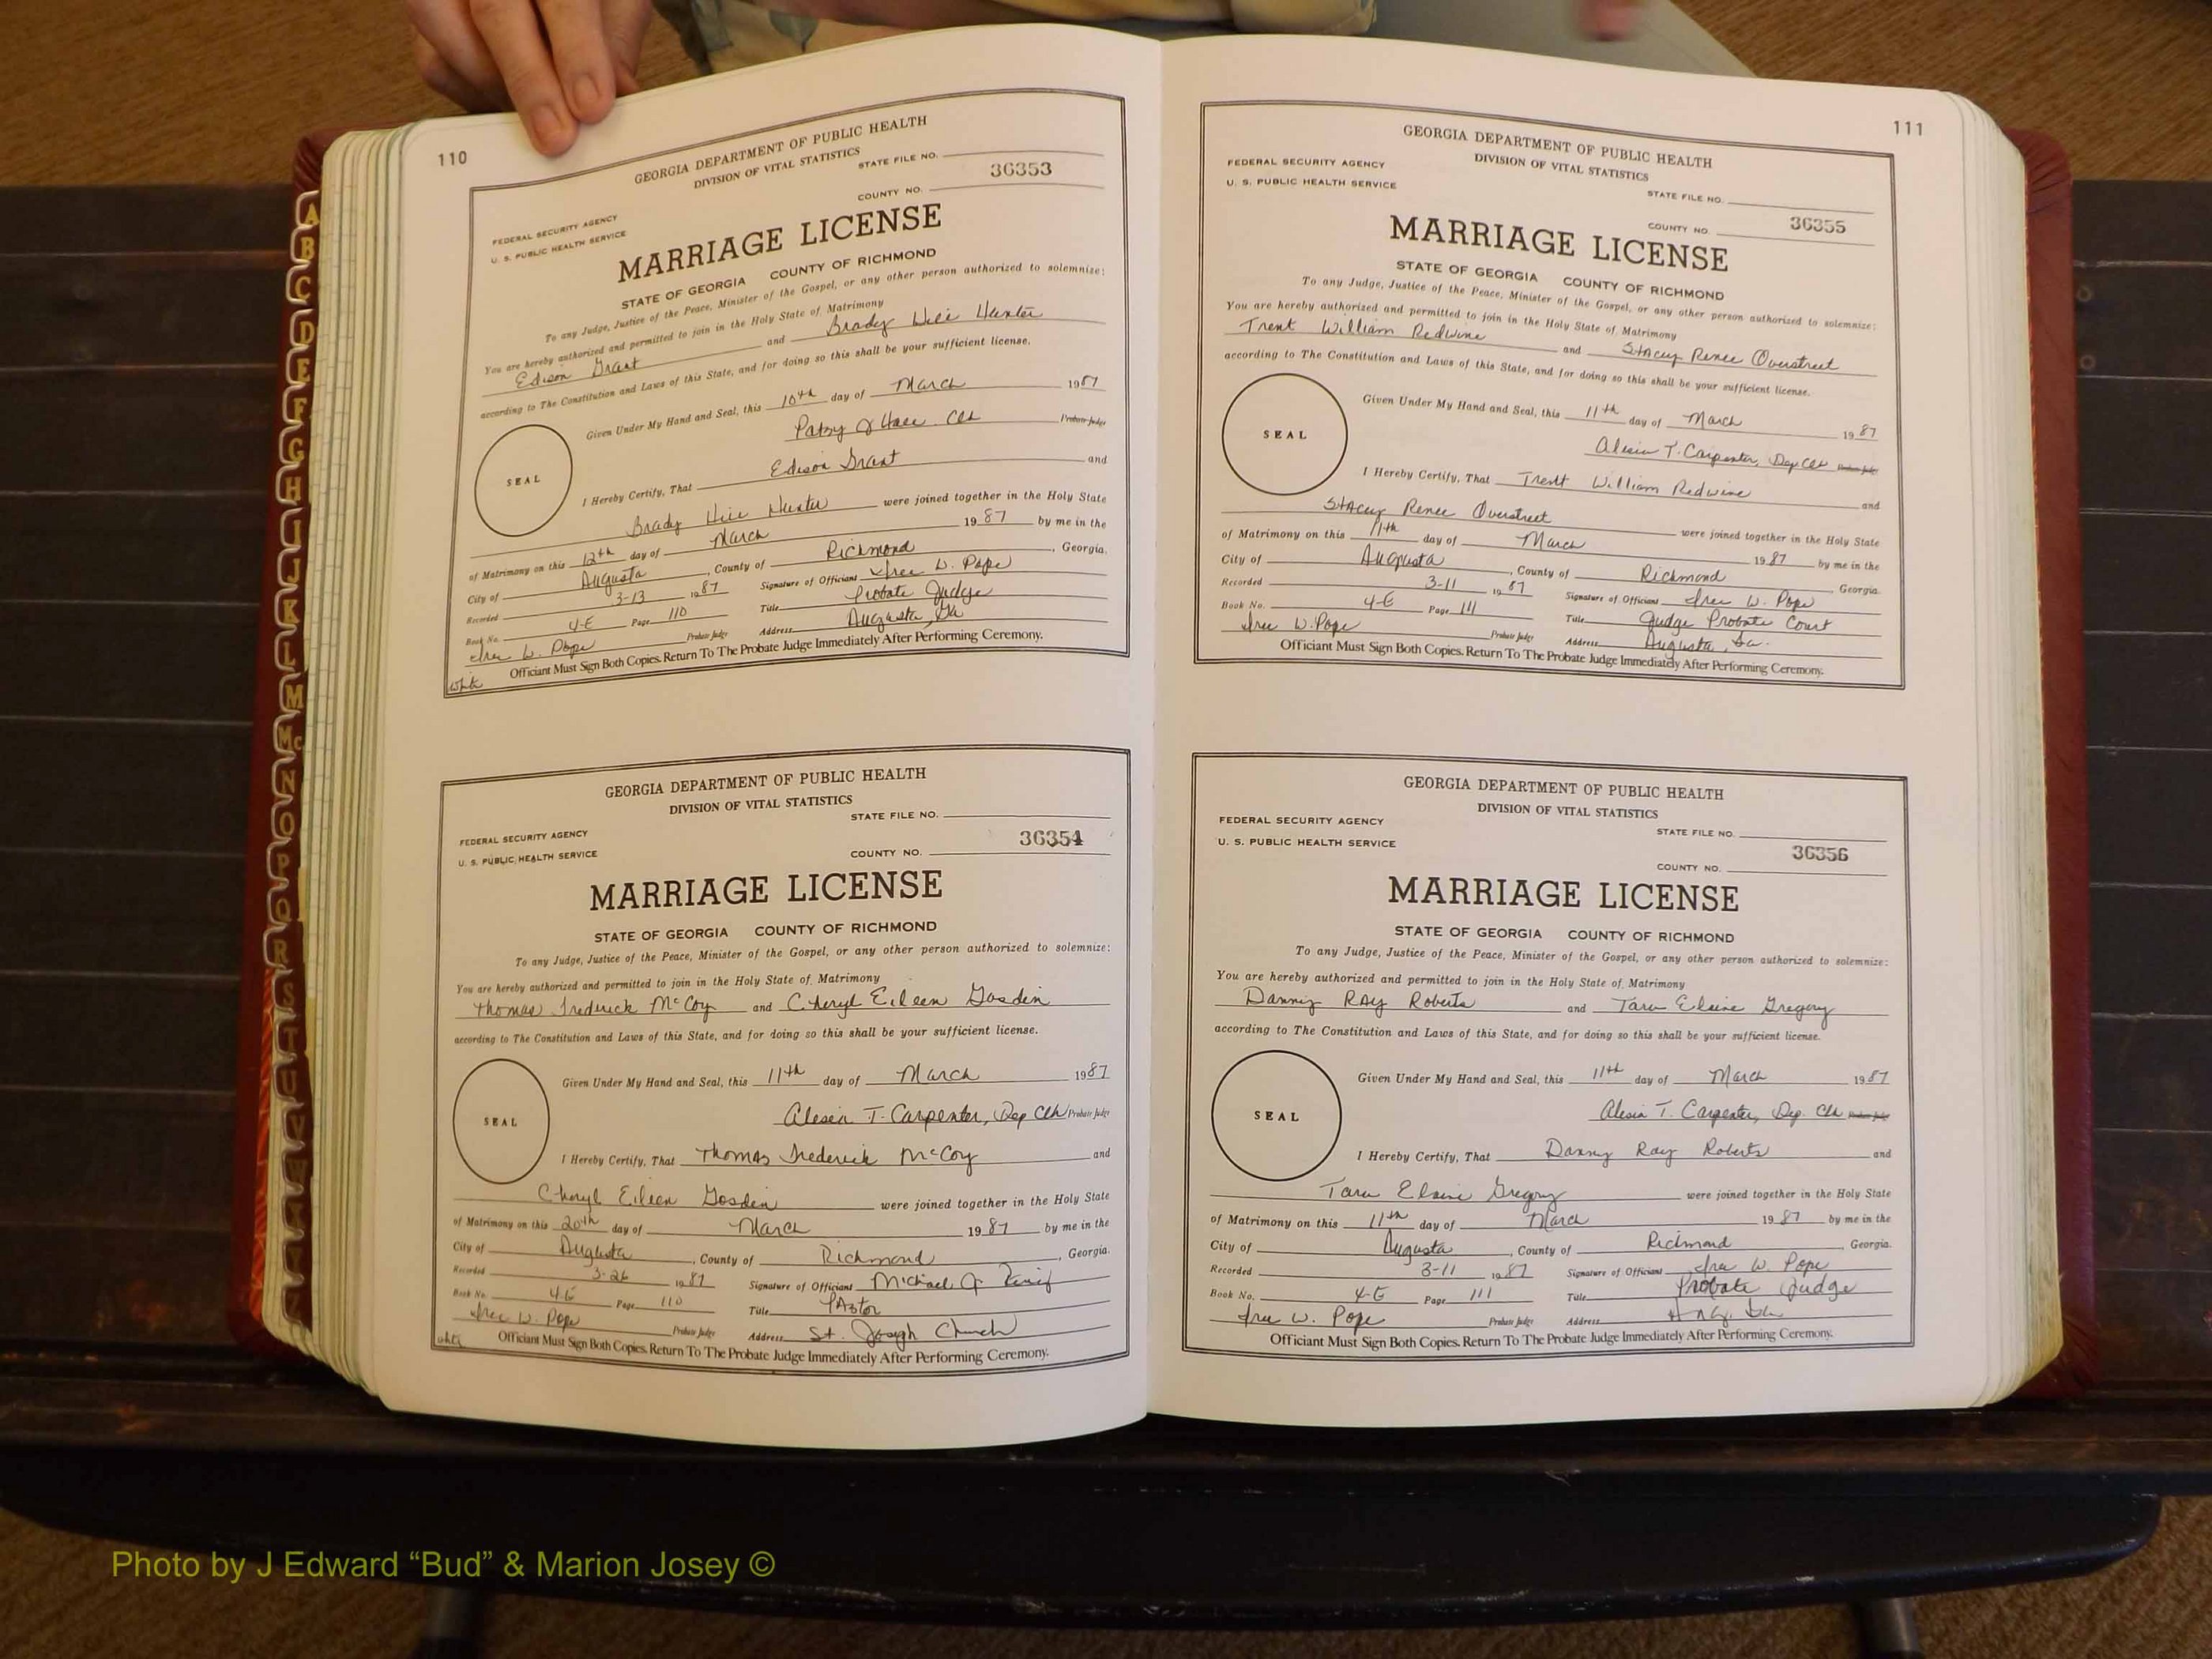 110
GEORGIA DEPARTMENT OF PUBLIC HEALTH
DIVISION OF VITAL STATISTICS
STATE FILE NO.
36353
COUNTY NO.
FEDERAL SECURITY AGENCY
U. S. PUBLIC HEALTH SERVICE
MARRIAGE LICENSE
STATE OF GEORGIA COUNTY OF RICHMOND
To any Judge, Justice of the Peace, Minister of the Gospel, or any other person authorized to solemnize:
You are hereby authorized and permitted to join in the Holy State of Matrimony
Edison Grant and Brady Hunter
according to The Constitution and Laws of this State, and for doing so this shall be your sufficient license.
Given Under My Hand and Seal, this 10th day of March 1987
Patsy Probate Judge
SEAL
I Hereby Certify, That Edison Grant and
Brady Hunter were joined together in the Holy State
of Matrimony on this 12th day of March 1987 by me in the
City of Augusta, County of Richmond, Georgia.
Recorded 3-13 1987 Signature of Officiant W. Pope
Book No. 4-E Page 110 Title Probate Judge
W. Pope Probate Judge Address Augusta, Ga
Officiant Must Sign Both Copies. Return To The Probate Judge Immediately After Performing Ceremony.
white
GEORGIA DEPARTMENT OF PUBLIC HEALTH
DIVISION OF VITAL STATISTICS
STATE FILE NO.
FEDERAL SECURITY AGENCY
36354
U. S. PUBLIC HEALTH SERVICE
COUNTY NO.
MARRIAGE LICENSE
STATE OF GEORGIA COUNTY OF RICHMOND
To any Judge, Justice of the Peace, Minister of the Gospel, or any other person authorized to solemnize:
You are hereby authorized and permitted to join in the Holy State of Matrimony
Thomas Frederick McCoy and Cheryl Eileen Gosdin
according to The Constitution and Laws of this State, and for doing so this shall be your sufficient license.
Given Under My Hand and Seal, this 11th day of March 1987
Alesia T. Carpenter, Dep Clk Probate Judge
SEAL
I Hereby Certify, That Thomas Frederick McCoy and
Cheryl Eileen Gosdin were joined together in the Holy State
of Matrimony on this 20th day of March 1987 by me in the
City of Augusta, County of Richmond, Georgia.
Recorded 3-26 1987 Signature of Officiant Michael J.
Book No. 4-E Page 110 Title Pastor
W. Pope Probate Judge Address St. Joseph Church
white Officiant Must Sign Both Copies. Return To The Probate Judge Immediately After Performing Ceremony.
111
GEORGIA DEPARTMENT OF PUBLIC HEALTH
DIVISION OF VITAL STATISTICS
FEDERAL SECURITY AGENCY
U. S. PUBLIC HEALTH SERVICE
STATE FILE NO.
36355
COUNTY NO.
MARRIAGE LICENSE
STATE OF GEORGIA COUNTY OF RICHMOND
To any Judge, Justice of the Peace, Minister of the Gospel, or any other person authorized to solemnize:
You are hereby authorized and permitted to join in the Holy State of Matrimony
Trent William Redwine and Stacey Renee Overstreet
according to The Constitution and Laws of this State, and for doing so this shall be your sufficient license.
Given Under My Hand and Seal, this 11th day of March 1987
Alesia T. Carpenter, Dep Clk Probate Judge
SEAL
I Hereby Certify, That Trent William Redwine and
Stacey Renee Overstreet were joined together in the Holy State
of Matrimony on this 11th day of March 1987 by me in the
City of Augusta, County of Richmond Georgia.
Recorded 3-11 1987 Signature of Officiant W. Pope
Book No. 4-E Page 111 Title Judge Probate Court
W. Pope Probate Judge Address Augusta, Ga.
Officiant Must Sign Both Copies. Return To The Probate Judge Immediately After Performing Ceremony.
GEORGIA DEPARTMENT OF PUBLIC HEALTH
DIVISION OF VITAL STATISTICS
FEDERAL SECURITY AGENCY
STATE FILE NO.
U. S. PUBLIC HEALTH SERVICE
36356
COUNTY NO.
MARRIAGE LICENSE
STATE OF GEORGIA COUNTY OF RICHMOND
To any Judge, Justice of the Peace, Minister of the Gospel, or any other person authorized to solemnize:
You are hereby authorized and permitted to join in the Holy State of Matrimony
Danny Ray Roberts and Tara Elaine Gregory
according to The Constitution and Laws of this State, and for doing so this shall be your sufficient license.
Given Under My Hand and Seal, this 11th day of March 1987
Alesia T. Carpenter, Dep. Clk Probate Judge
SEAL
I Hereby Certify, That Danny Ray Roberts and
Tara Elaine Gregory were joined together in the Holy State
of Matrimony on this 11th day of March 1987 by me in the
City of Augusta, County of Richmond, Georgia.
Recorded 3-11 1987 Signature of Officiant W. Pope
Book No. 4-E Page 111 Title Probate Judge
W. Pope Probate Judge Address
Officiant Must Sign Both Copies. Return To The Probate Judge Immediately After Performing Ceremony.
A
B
C
D
E
F
G
H
I
J
K
L
M
Mc
N
O
P
Q
R
S
T
U
V
W
Photo by J Edward “Bud” & Marion Josey ©